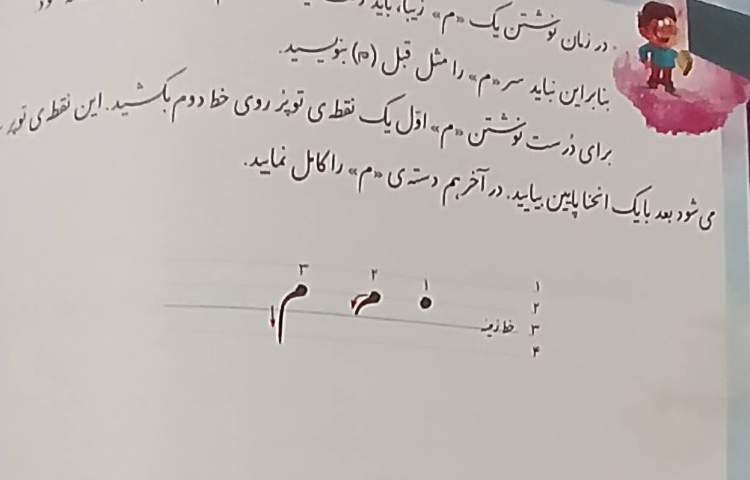 در زمان نوشتن یک «م» زیبا، باید
بنابراین نباید سر «م» را مثل قبل (م) بنویسید.
برای درست نوشتن «م» اوّل یک نقطه‌ی توپُر روی خط دوم بکشید. این نقطه‌ی توپر
می شود بعد با یک انحنا پایین بیایید. در آخر هم دسته‌ی «م» را کامل نمایید.
۱ ۲ ۳
۱
۲
۳ خط زمینه
۴